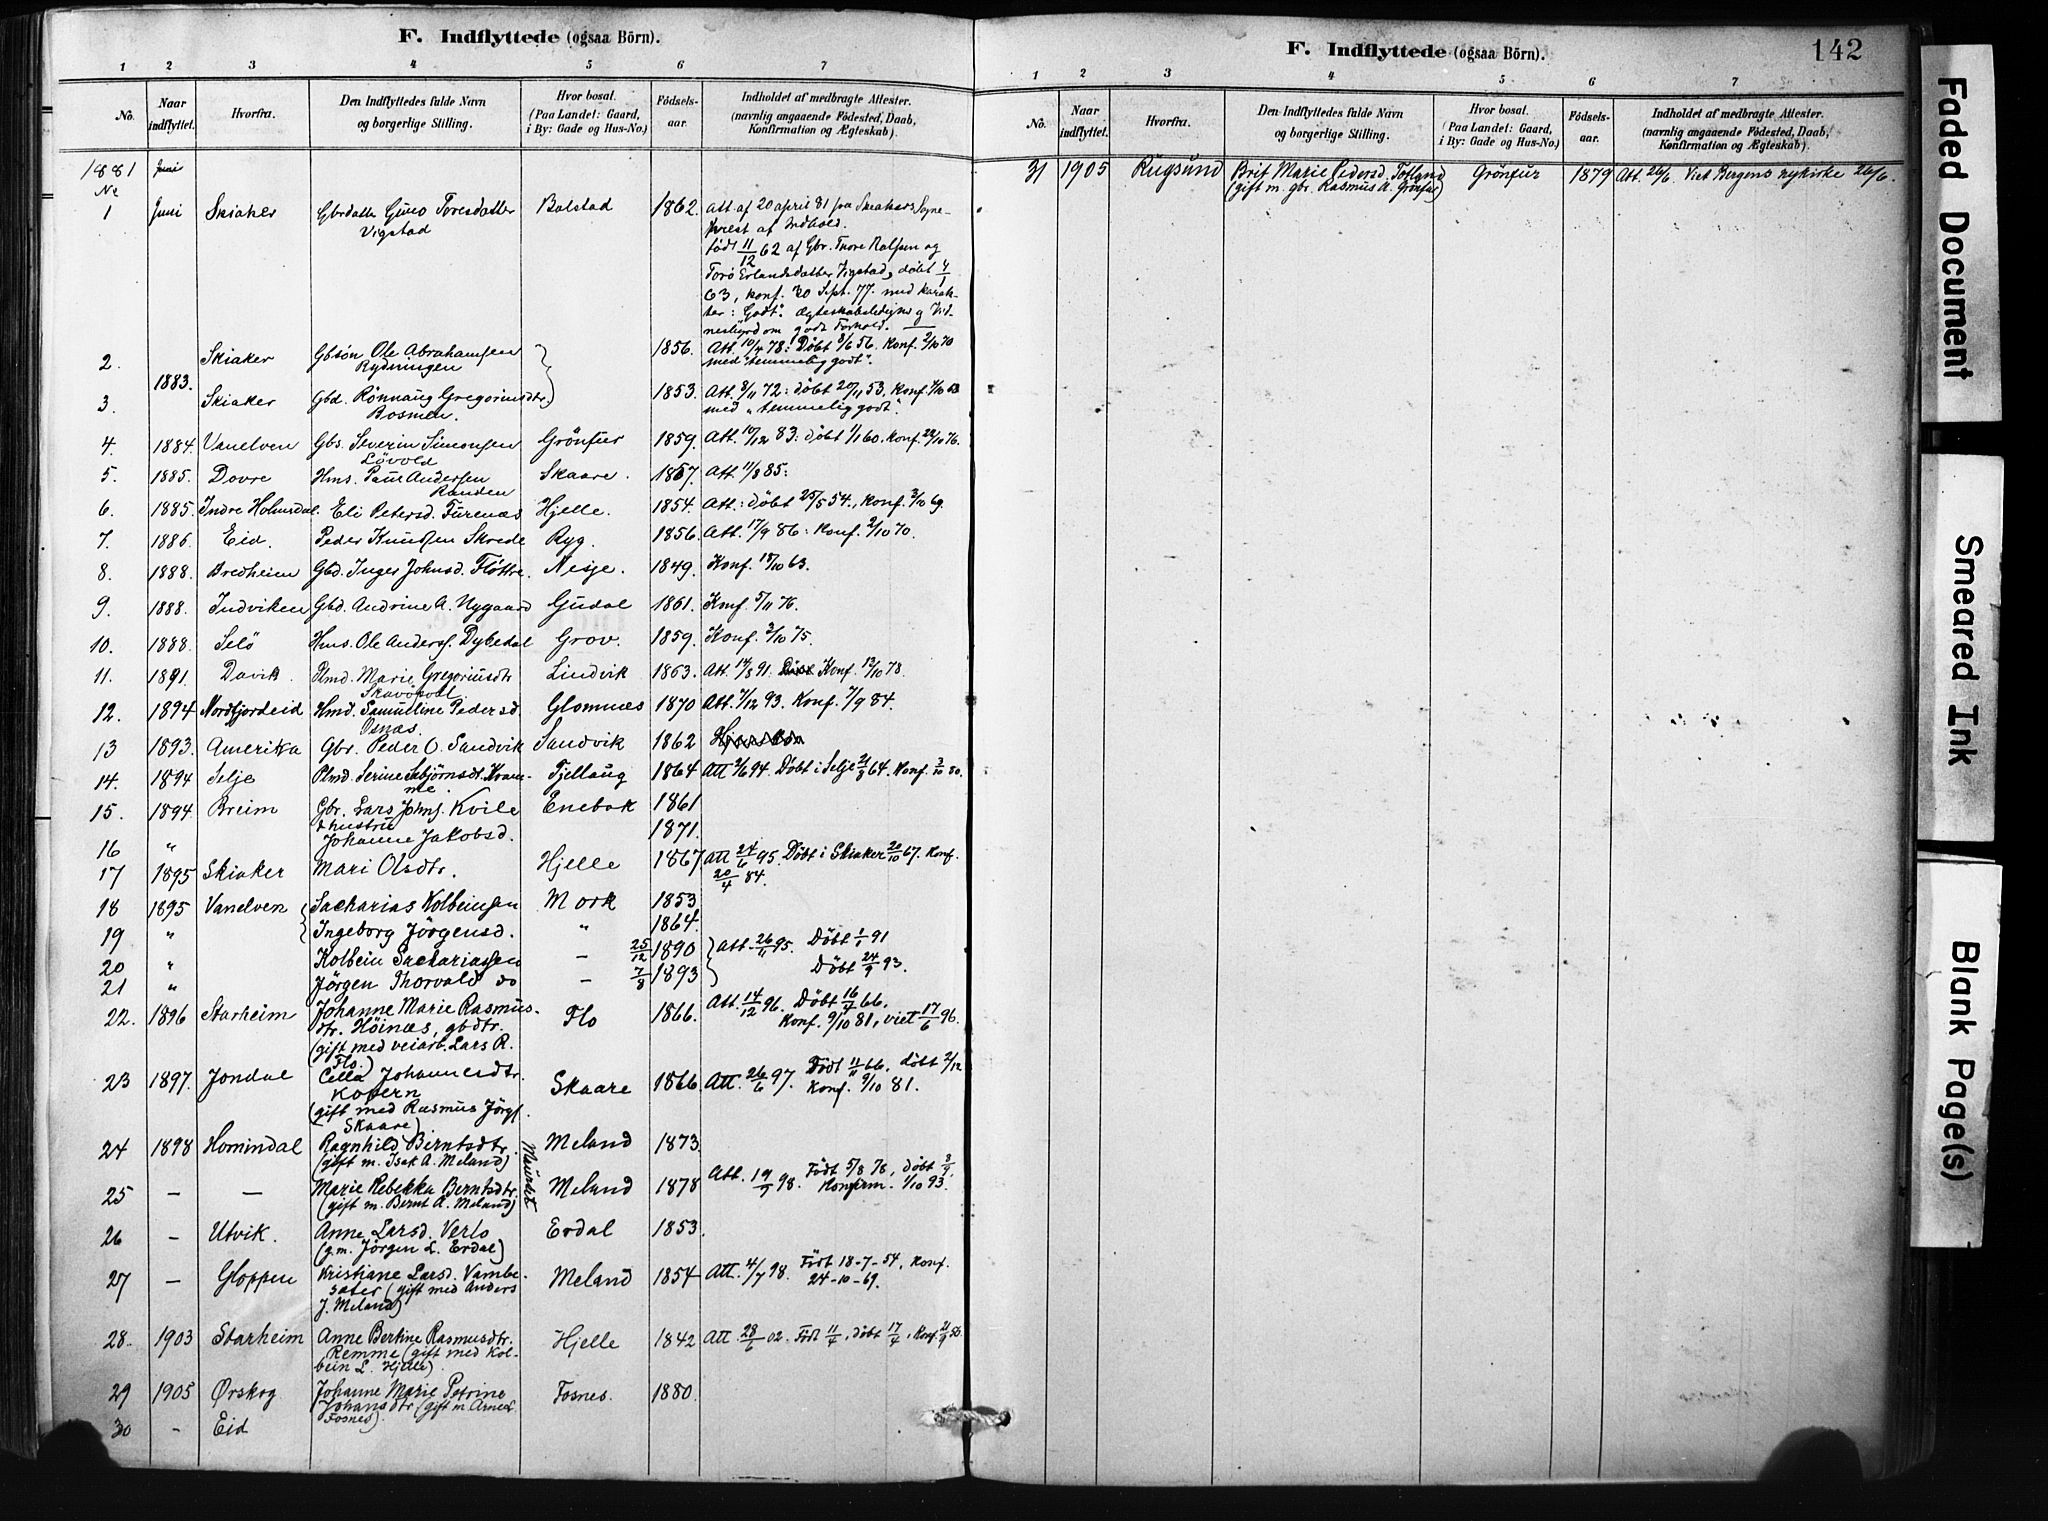 F. Indflyttede (ogsaa Börn).
1 2 3 4 5 6 7
No. Naar indflyttet. Hvorfra. Den Indflyttedes fulde Navn og borgerlige Stilling. Hvor bosat. (Paa Landet: Gaard, i By: Gade og Hus-No.) Födsels-aar. Indholdet af medbragte Attester. (navnlig angaaende Födested, Daab, Konfirmation og Ægteskab).
1881 Juni
No
1 Juni Skiaker Gbrdatter Guro Toresdatter Bolstad 1862. Att af 20 april 81 fra Skeakers Sogne-
Vigstad prest af Indhold.
født 11/12 62 af Gbr. Thore Rolfsen og
Torø Erlandsdatter Vigstad, døbt 4/1
63, konf. 30 Sept. 77. med karak-
ter: "Godt". Ægteskabsledig og Vid-
nesbyrd om godt Forhold.
2. Skiaker Gbsön Ole Abrahamsen 1856. Att. 10/4 78: Døbt 8/6 56. Konf. 2/10 70
Rydningen med "temmelig godt".
1883.
3. Skiaker Gbd. Rönnaug Gregoriusdtr. 1853. Att. 8/11 72: døbt 20/11 53. Konf. 4/10 68
Bosmen. med "temmelig godt".
4. 1884. Vanelven Gbs. Severin Simonsen Grönfur 1859. Att. 10/12 83: døbt 1/1 60. Konf. 22/10 76.
Lövold
5. 1885. Dovre Hms. Paul Andersen Skaare. 1857. Att. 11/8 85:
Randen
6. 1885. Indre Holmedal. Eli Petersd. Furenæs Hjelle. 1854. Att: døbt 25/5 54., Konf. 3/10 69.
7. 1886. Eid. Peder Knudsen Skrede Ryg. 1856. Att. 17/9 86: Konf. 2/10 70.
8. 1888. Bredheim Gbd. Inger Johnsd. Flöttre. Nesje. 1849. Konf. 18/10 63.
9. 1888. Indviken Gbd. Andrine A. Nygaard Gudal 1861. Konf. 5/11 76.
10. 1888. Selö Hms. Ole Anders. Dybedal Grov. 1859. Konf. 3/10 75.
11. 1891. Davik. Plmd. Marie Gregoriusdtr Lindvik 1863. Att. 14/8 91. Døbt Konf. 13/10 78.
12. 1894 Nordfjordeid Hmd. Samueline Pedersd. Glomnæs 1870 Att. 7/12 93. Konf. 7/9 84.
Osnæs.
13 1893. Amerika Gbr. Peder O. Sandvik Sandvik 1862
14. 1894 Selje Plmd. Serine Asbjörnsdt. Kram- Tjellaug 1864 Att 2/6 94. Døbt i Selje 21/8 64. Konf. 3/10 80.
me.
15. 1894. Breim Gbr. Lars Johns. Kvile Enebak 1861
& hustru
16 " Johanne Jakobsd. 1871.
17 1895 Skiaker Mari Olsdtr. Hjelle 1867 Att 24/6 95. Døbt i Skiaker 20/10 67. Konf.
20/4 84.
18 1895 Vanelven Sacharias Kolbeinsen Mork 1853
19 " Ingeborg Jörgensd. " 1864.
20 " Kolbein Sachariassen - 25/12 1890 Att. 26/11 95. Døbt 1/1 91
21 " Jörgen Thorvald do - 7/8 1893 Døbt 24/9 93.
22. 1896 Starheim Johanne Marie Rasmus- Flo 1866. Att. 14/12 96. Døbt 16/7 66.
dtr. Höinæs, gbdtr. Konf. 9/10 81, viet 17/6 96.
(gift med veiarb. Lars R.
Flo.)
23 1897. Jondal Cella Johannesdtr. Skaare 1866 Att. 26/6 97. Født 11/11 66, døbt 2/12
Kopern Konf. 9/10 81.
(gift med Rasmus Jörgs.
Skaare)
24 1898 Hornindal Ragnhild Berntsdtr. Meland 1873.
(gift m. Isak A. Meland)
25 - - Marie Rebekka Berntsdtr. Maurset Meland 1878 Att. 19/7 98. Født 5/8 78, døbt 8/9.
(gift m. Bernt A. Meland) Konfirm. 1/10 93.
26 - Utvik. Anne Larsd. Verlo Erdal 1853.
(g.m. Jörgen L. Erdal)
27 - Gloppen Kristiane Larsd. Vambe- Meland 1854 Att. 4/7 98. Født 18-7-54, Konf.
sæter (gift med Anders 24-10-69.
J. Meland)
28. 1903 Starheim Anne Bertine Rasmusdtr. Hjelle 1842 Att. 28/6 02. Født 11/4, døbt 17/4, Konf. 21/9 56.
Remme (gift med Kol-
bein L. Hjelle)
29 1905 Ørskog Johanne Marie Petrine Fosnes. 1880.
Johansdtr (gift m. Arne L.
Fosnes)
30 - Eid
142
F. Indflyttede (ogsaa Börn).
1 2 3 4 5 6 7
No. Naar indflyttet. Hvorfra. Den Indflyttedes fulde Navn og borgerlige Stilling. Hvor bosat. (Paa Landet: Gaard, i By: Gade og Hus-No.) Födsels-aar. Indholdet af medbragte Attester. (navnlig angaaende Födested, Daab, Konfirmation og Ægteskab).
31 1905 Rugsund Brit Marie Pedersd. Totland Grönfur 1879 Att. 26/6. Viet Bergens nykirke 26/6.
(gift m. gbr. Rasmus A. Grönfur)
Faded Document
Smeared Ink
Blank Page(s)